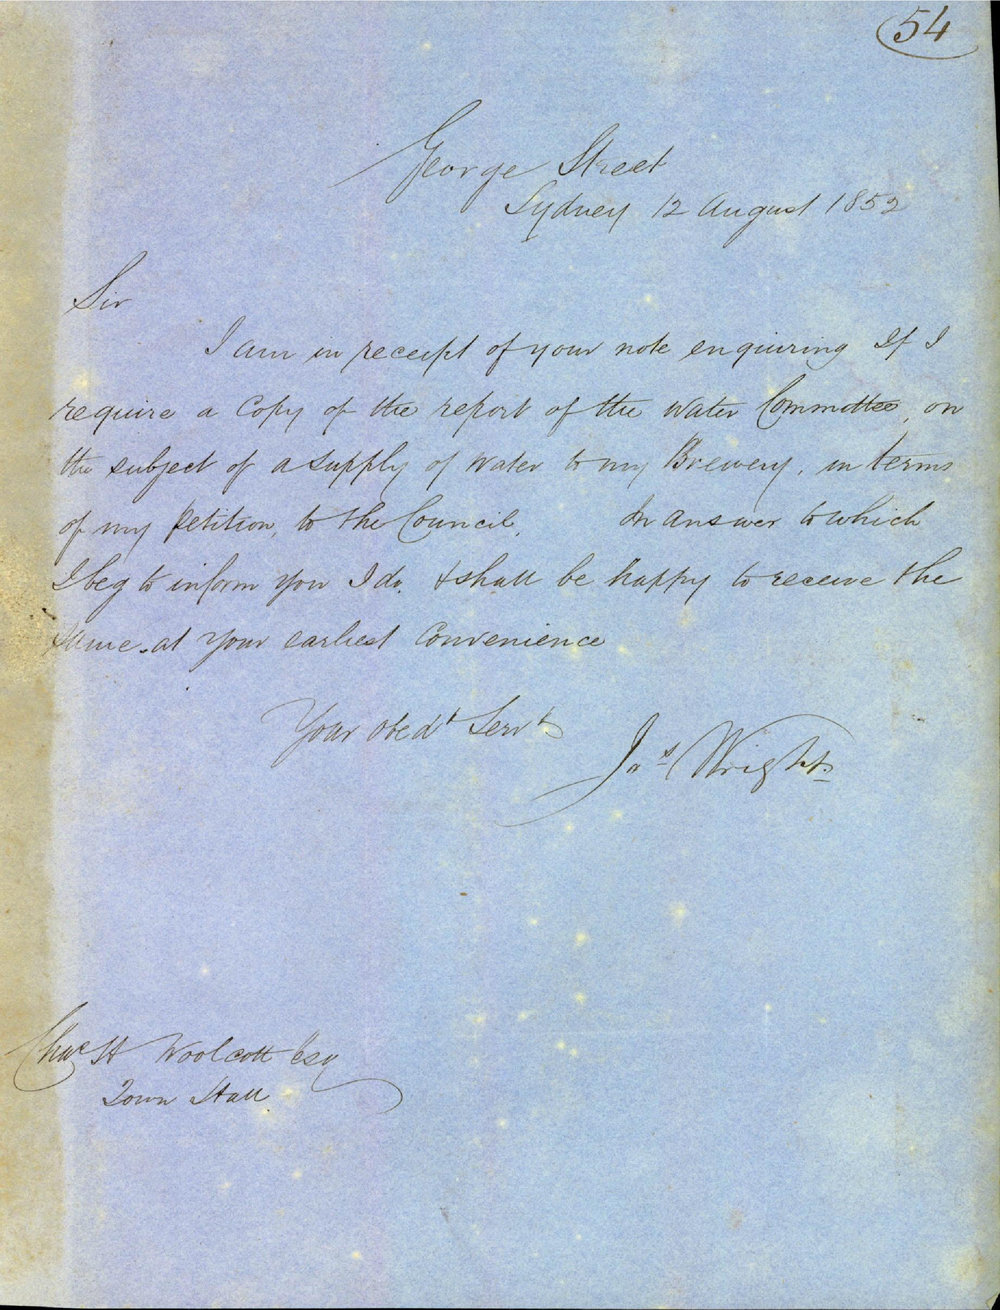 54
George Street
Sydney 12 August 1852
Sir
I am in receipt of your note enquiring If I
require a Copy of the report of the Water Committee, on
the subject of a supply of Water to my Brewery, in terms
of my Petition, to the Council. In answer to which
I beg to inform you I do. & shall be happy to receive the
same at your earliest Convenience
Your obedt Servt
Jas Wright
Chas H Woolcott Esq
Town Hall